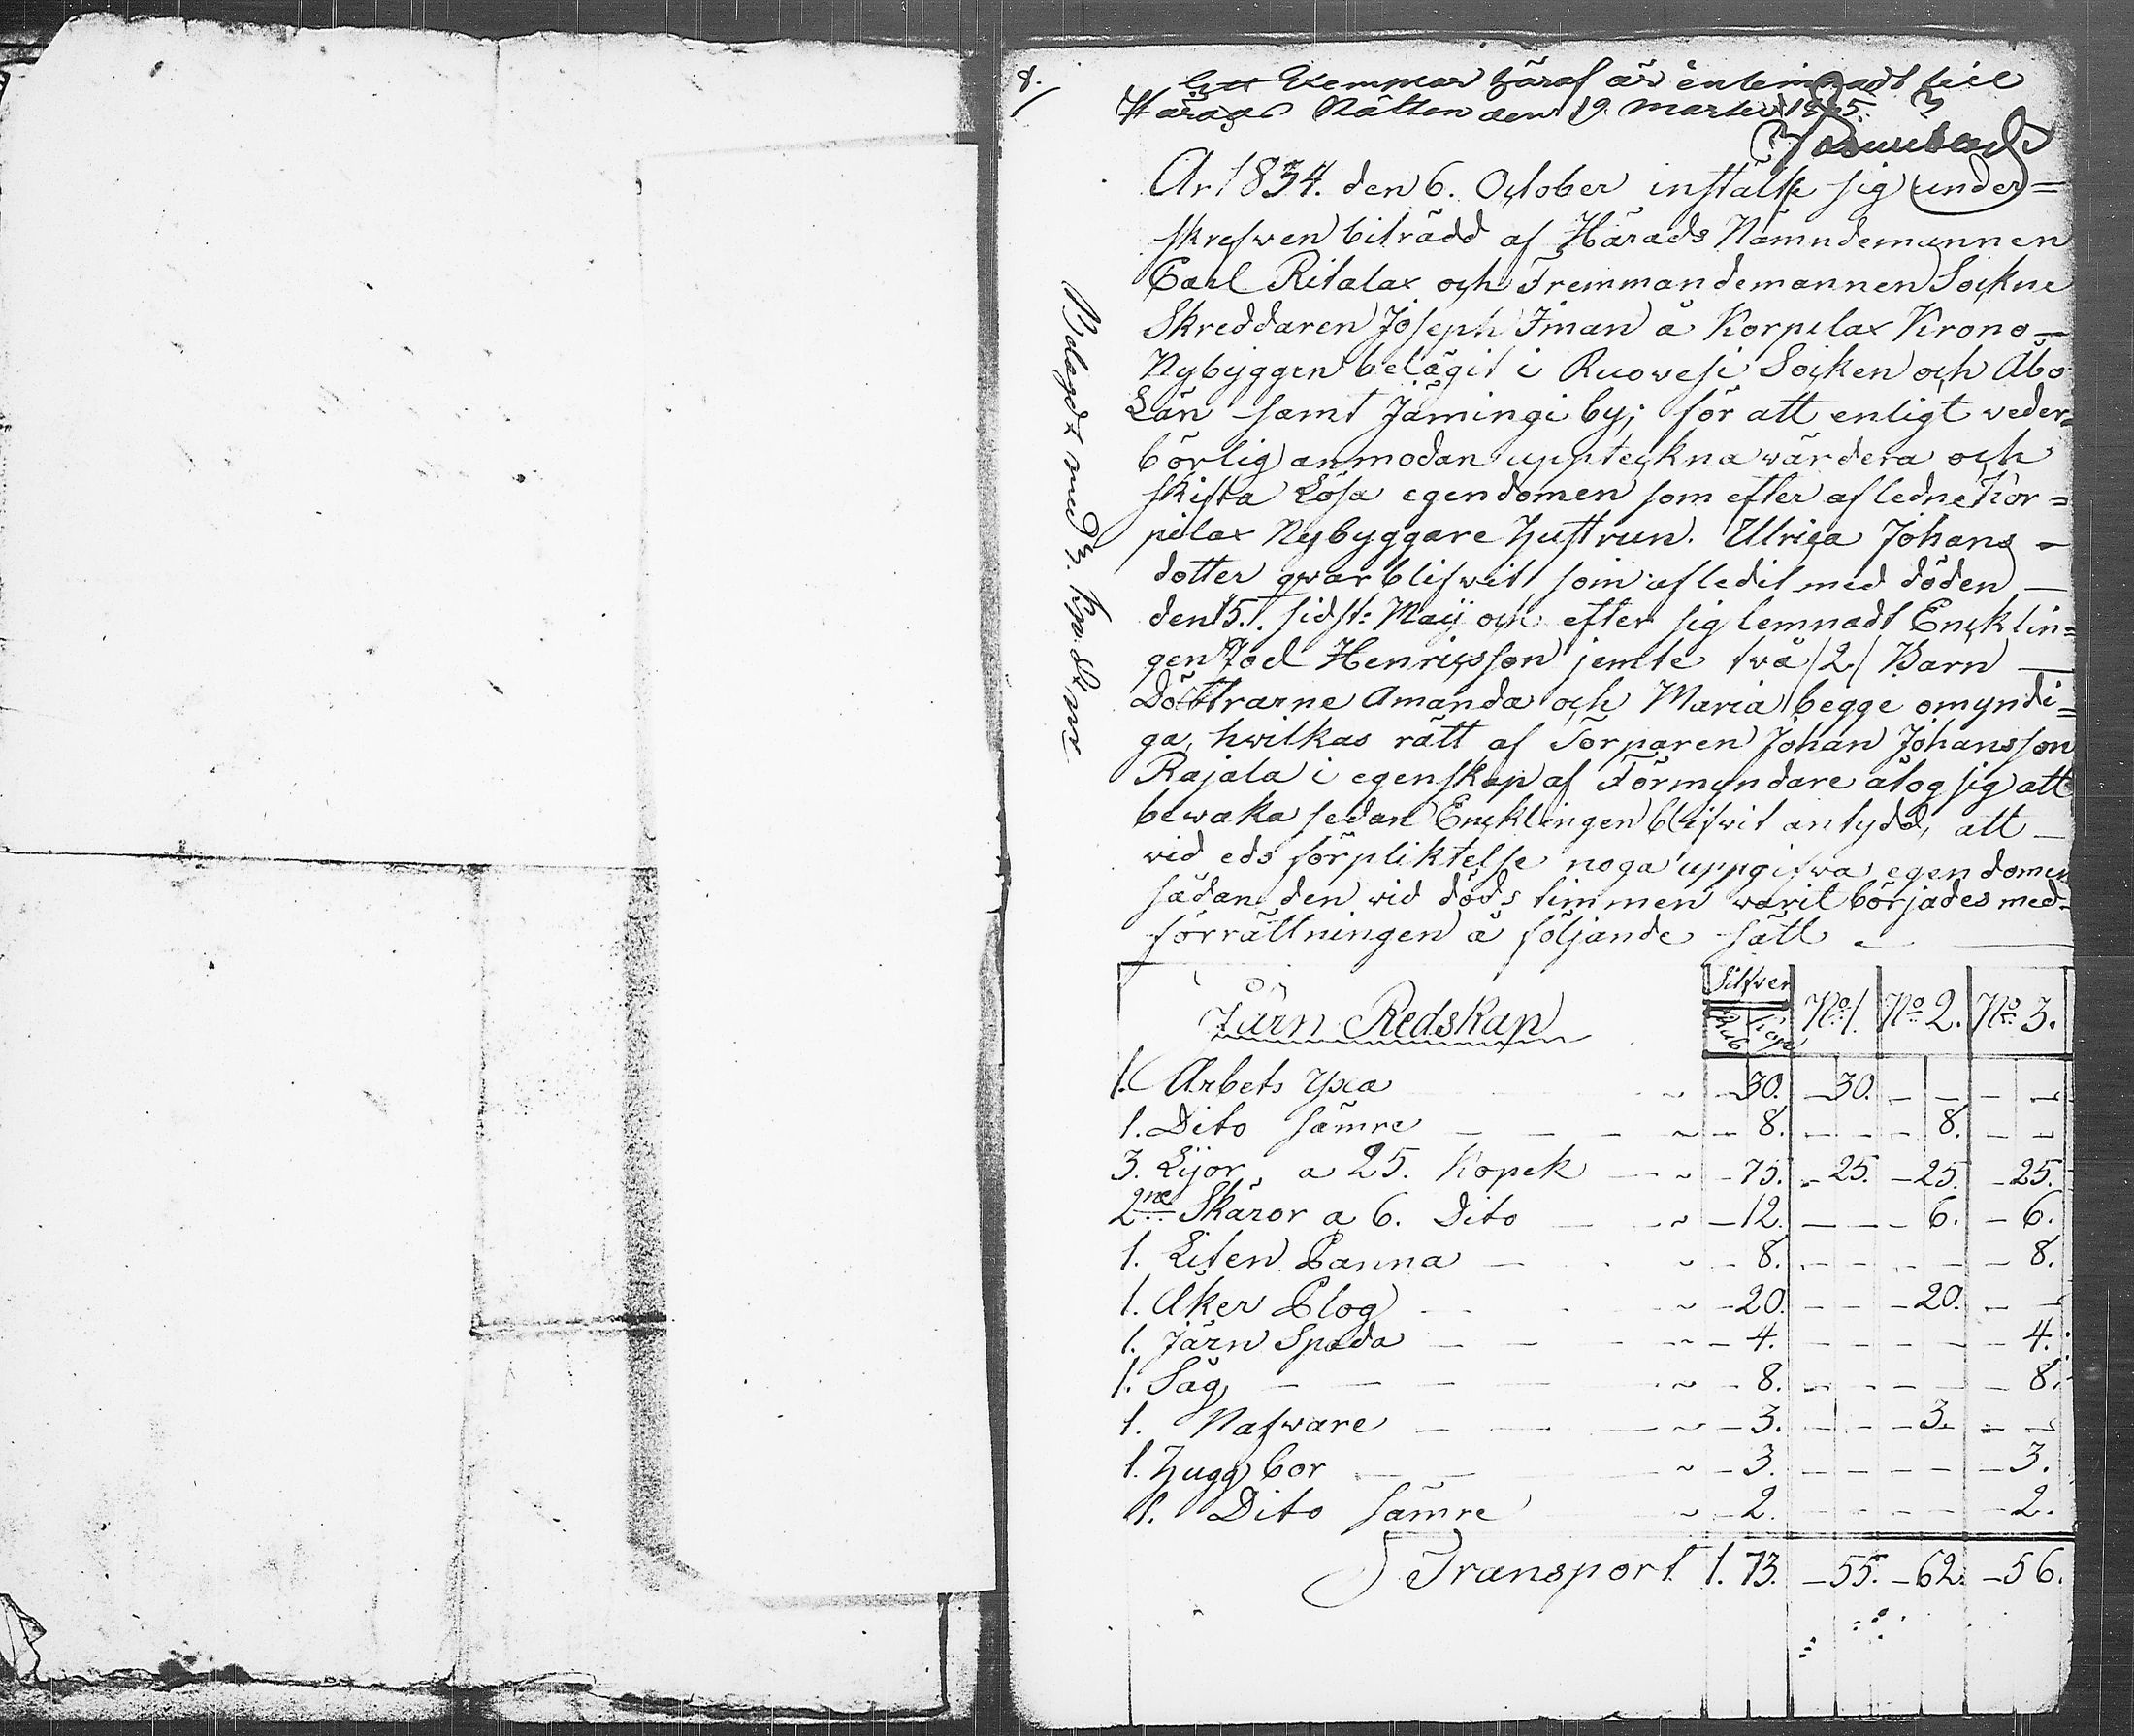 8.
Ett Exemplar häraf är inlemnadt till
Härads Rätten den 19 Martii 1835.
År 1834. den 6. October instälte sig under=
skrefwen biträdd af Härads Nämndemannen
Carl Ritalax och Fremmandemannen Sockne
Skreddaren Joseph Iman å Korpilax Krono-
Nybyggen belägit i Ruovesi Socken och Åbo
Län samt Jäminginby; för att enligt veder=
börlig anmodan uppteckna värdera och
skifta Lösa egendomen som efter afledne Kor=
pilax Nybyggare Hustrun. Ulrica Johans-
dotter qwarblifwit som afledit med döden —
den 15. sidst: Maij och efter sig lemnadt Encklin=
gen Joel Henricsson jemte twå /2/ Barn —
Döttrarne Amanda och Maria begge omyndi=
ga, hwilkas rätt af Torparen Johan Johansson
Rajala i egenskap af Förmyndare åtog sig att
bewaka sedan Encklingen blifwit antydd, att —
vid eds förpliktelse noga uppgifwa egendomen
sådan den vid döds timmen warit börjades med-
förrättningen å följande sätt —
Belagdt med
Järn Redskap Silfver Rub Kope No 1. No 2. No 3.
1. Arbets Yxa - 30. - 30. - - - -
1. Dito sämre - 8. - - - 8. - -
3. Lijor a 25. Kopek - 75. - 25. - 25. - 25.
2ne Skäror a 6. Dito - 12. - - - 6. - 6.
1. Liten Panna - 8. - - - - - 8.
1. Åker Plog - 20. - - - 20. - -
1. Järn Spada - 4. - - - - - 4.
1. Såg - 8. - - - - - 8.
1. Nafware - 3. - - - 3. - -
1. Hugg bor - 3. - - - - - 3.
1. Dito sämre - 2. - - - - - 2.
Transport 1. 73. - 55. - 62. - 56.